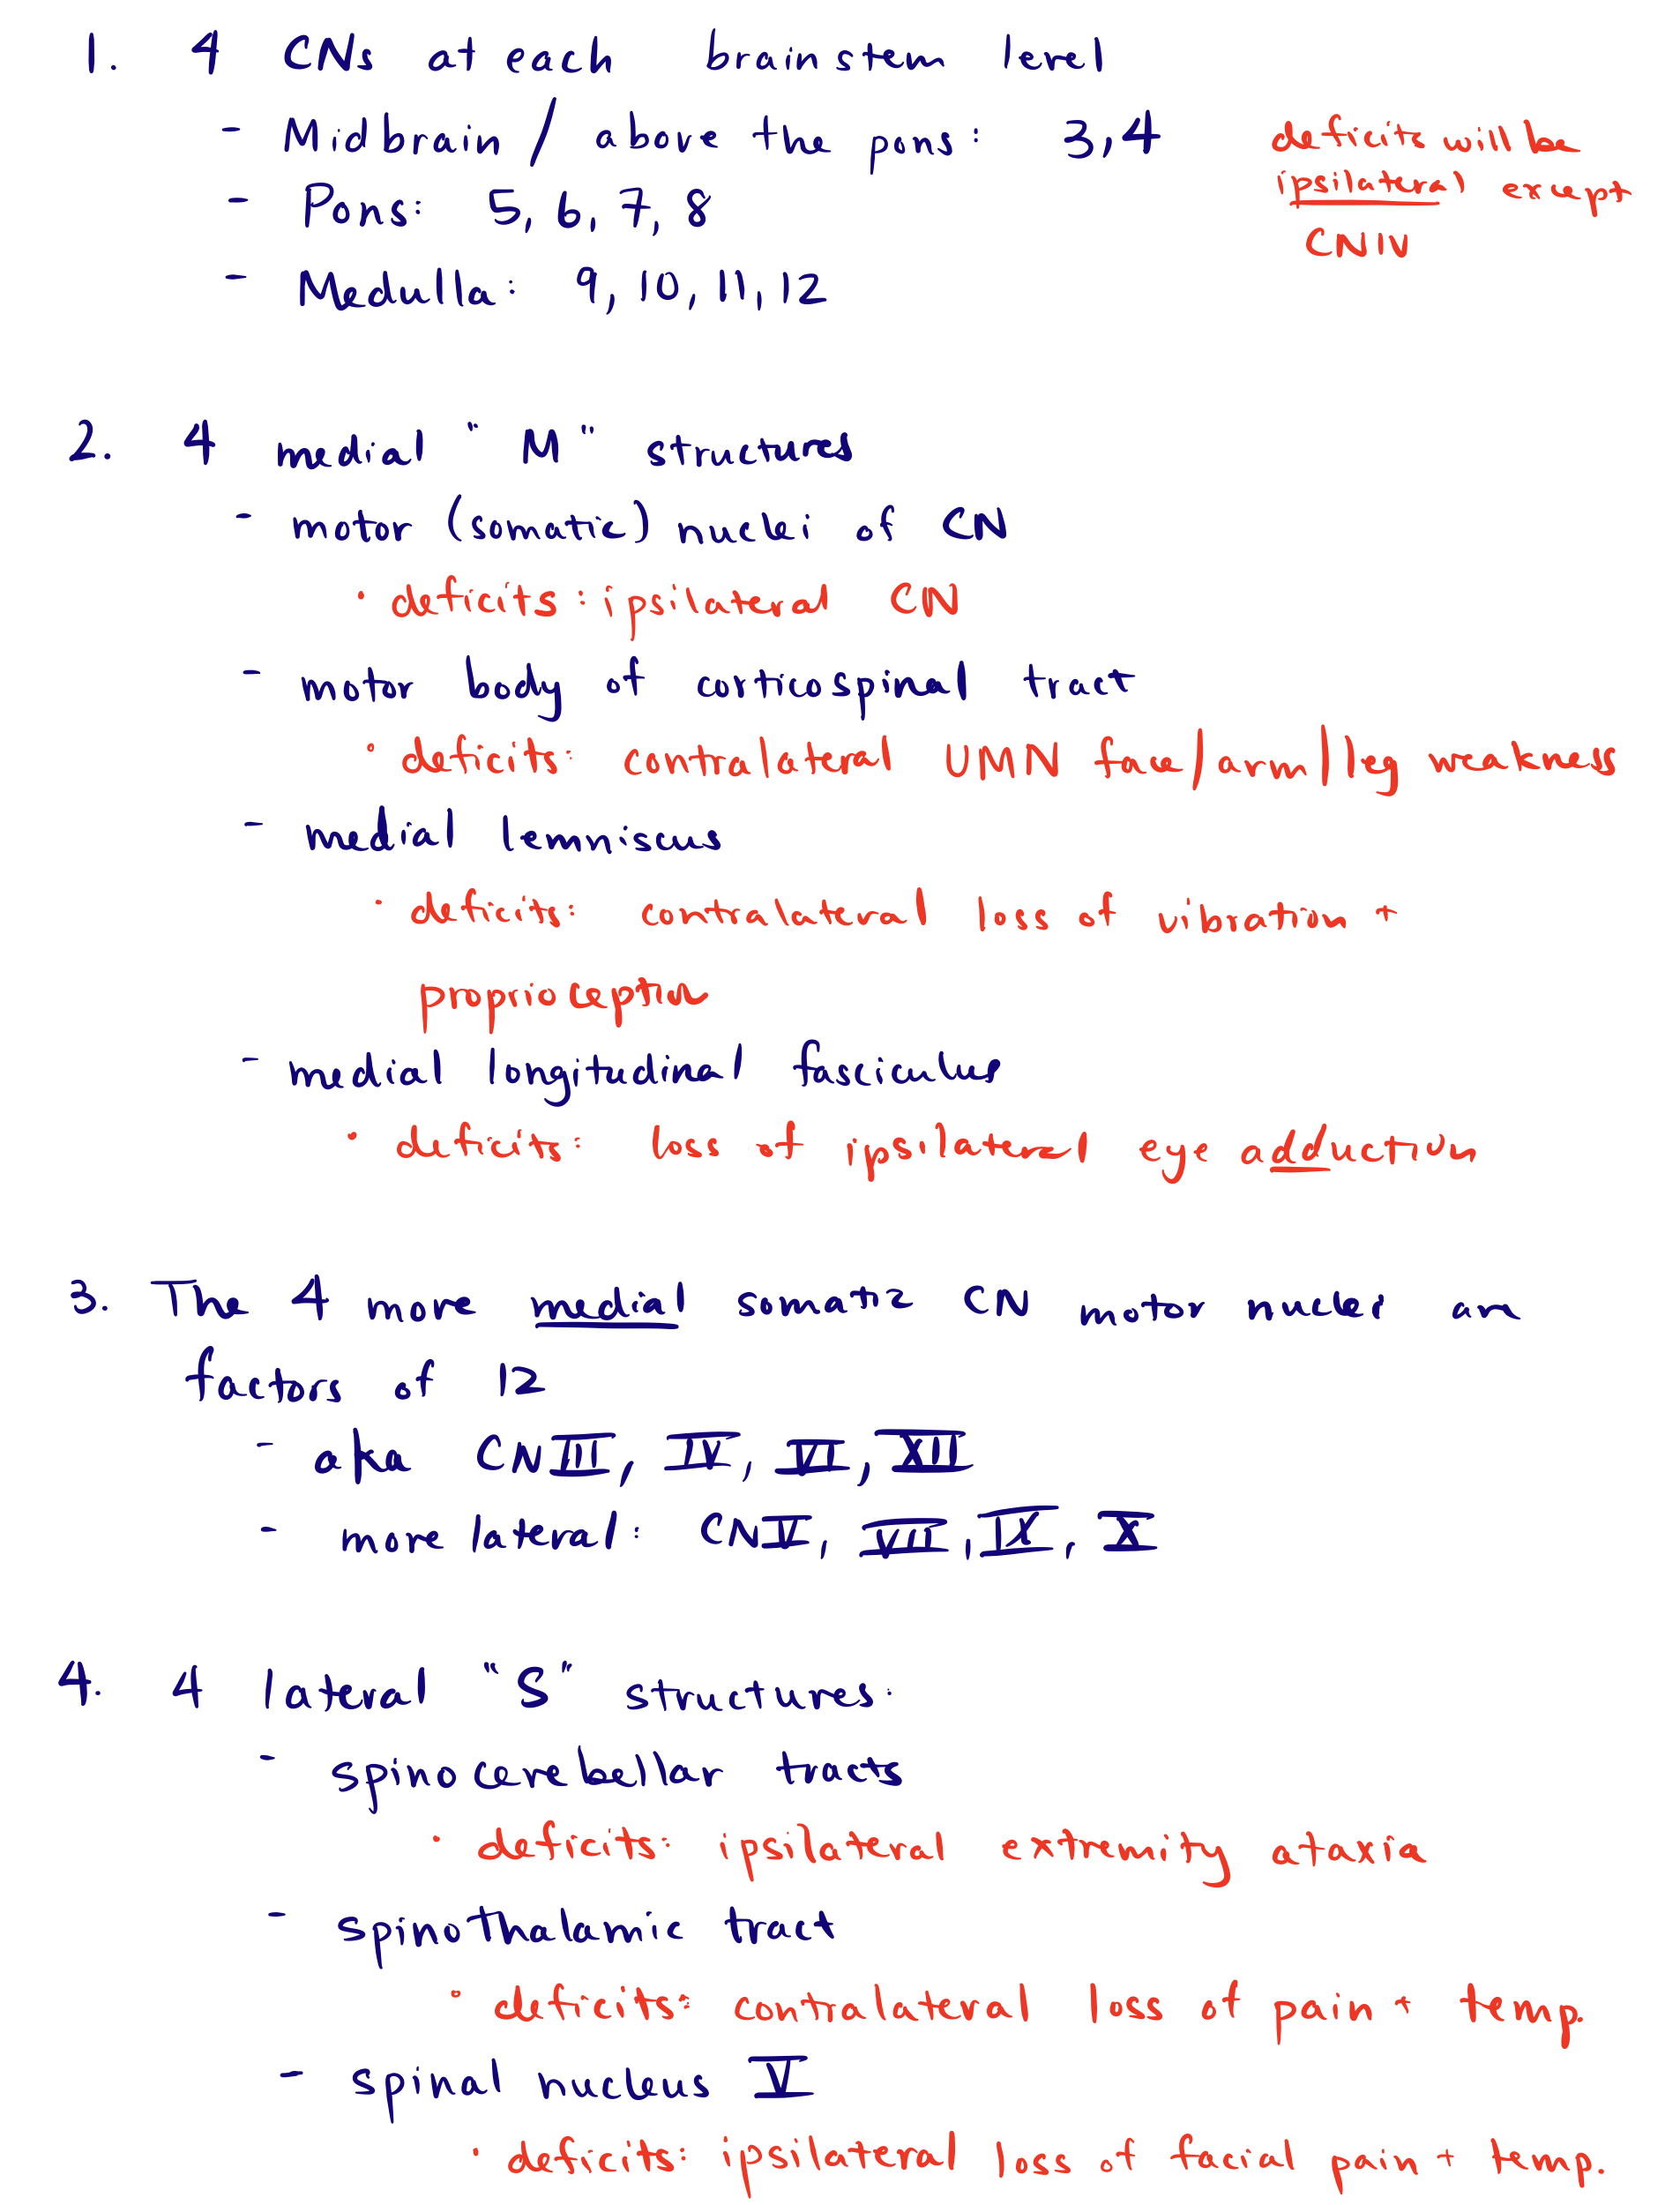 1. 4 CNs at each brainstem level
- Midbrain / above the pons: 3,4
deficits will be
ipsilateral except
CNIV
- Pons: 5, 6, 7, 8
- Medulla: 9, 10, 11, 12
2. 4 medial "M" structures
- motor (somatic) nuclei of CN
• deficits: ipsilateral CN
- motor body of corticospinal tract
• deficits: contralateral UMN face/arm/leg weakness
- medial lemniscus
• deficits: contralateral loss of vibration +
proprioception
- medial longitudinal fasciculus
• deficits: loss of ipsilateral eye adduction
3. The 4 more medial somatic CN motor nuclei are
factors of 12
- aka CNIII, IV, VI, XII
- more lateral: CNV, VII, IX, X
4. 4 lateral "S" structures:
- spinocerebellar tracts
• deficits: ipsilateral extremity ataxia
- spinothalamic tract
• deficits: contralateral loss of pain + temp.
- spinal nucleus V
• deficits: ipsilateral loss of facial pain + temp.